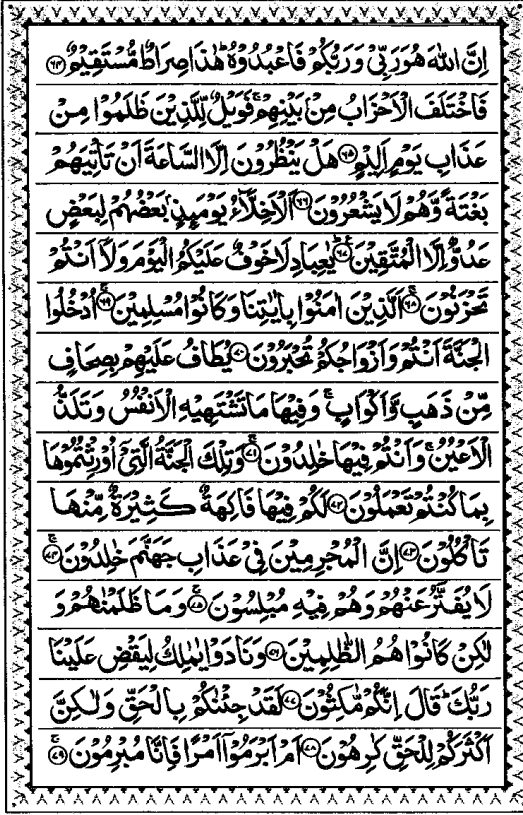 اِنَّ اللّٰهَ هُوَ رَبِّیْ وَ رَبُّكُمْ فَاعْبُدُوْهُ ؕ هٰذَا صِرَاطٌ مُّسْتَقِیْمٌ ۶۴
فَاخْتَلَفَ الْاَحْزَابُ مِنْۢ بَیْنِهِمْ ۚ فَوَیْلٌ لِّلَّذِیْنَ ظَلَمُوْا مِنْ
عَذَابِ یَوْمٍ اَلِیْمٍ ۶۵ هَلْ یَنْظُرُوْنَ اِلَّا السَّاعَةَ اَنْ تَاْتِیَهُمْ
بَغْتَةً وَّ هُمْ لَا یَشْعُرُوْنَ ۶۶ اَلْاَخِلَّآءُ یَوْمَىِٕذٍۭ بَعْضُهُمْ لِبَعْضٍ
عَدُوٌّ اِلَّا الْمُتَّقِیْنَ ۶۷ یٰعِبَادِ لَا خَوْفٌ عَلَیْكُمُ الْیَوْمَ وَ لَاۤ اَنْتُمْ
تَحْزَنُوْنَ ۶۸ اَلَّذِیْنَ اٰمَنُوْا بِاٰیٰتِنَا وَ كَانُوْا مُسْلِمِیْنَ ۶۹ اُدْخُلُوا
الْجَنَّةَ اَنْتُمْ وَ اَزْوَاجُكُمْ تُحْبَرُوْنَ ۷۰ یُطَافُ عَلَیْهِمْ بِصِحَافٍ
مِّنْ ذَهَبٍ وَّ اَكْوَابٍ ۚ وَ فِیْهَا مَا تَشْتَهِیْهِ الْاَنْفُسُ وَ تَلَذُّ
الْاَعْیُنُ ۚ وَ اَنْتُمْ فِیْهَا خٰلِدُوْنَ ۷۱ وَ تِلْكَ الْجَنَّةُ الَّتِیْۤ اُوْرِثْتُمُوْهَا
بِمَا كُنْتُمْ تَعْمَلُوْنَ ۷۲ لَكُمْ فِیْهَا فَاكِهَةٌ كَثِیْرَةٌ مِّنْهَا
تَاْكُلُوْنَ ۷۳ اِنَّ الْمُجْرِمِیْنَ فِیْ عَذَابِ جَهَنَّمَ خٰلِدُوْنَ ۷۴
لَا یُفَتَّرُ عَنْهُمْ وَ هُمْ فِیْهِ مُبْلِسُوْنَ ۷۵ وَ مَا ظَلَمْنٰهُمْ وَ
لٰكِنْ كَانُوْا هُمُ الظّٰلِمِیْنَ ۷۶ وَ نَادَوْا یٰمٰلِكُ لِیَقْضِ عَلَیْنَا
رَبُّكَ ؕ قَالَ اِنَّكُمْ مّٰكِثُوْنَ ۷۷ لَقَدْ جِئْنٰكُمْ بِالْحَقِّ وَ لٰكِنَّ
اَكْثَرَكُمْ لِلْحَقِّ كٰرِهُوْنَ ۷۸ اَمْ اَبْرَمُوْۤا اَمْرًا فَاِنَّا مُبْرِمُوْنَ ۷۹